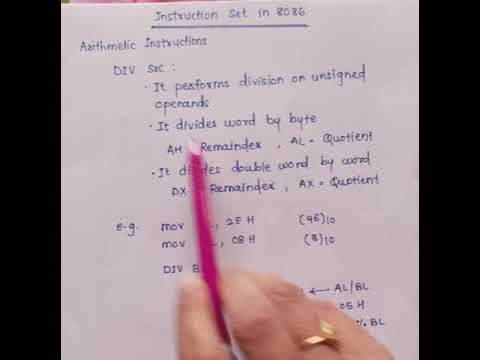 Instruction Set in 8086
Arithmetic Instructions
DIV Src :
• It performs division on unsigned
operands
• It divides word by byte
AH Remainder , AL = Quotient
• It divides double word by word
DX Remainder , AX = Quotient
e.g. mov , 2E H (46)10
mov , 08 H (8)10
DIV B
← AL/BL
05 H
% BL